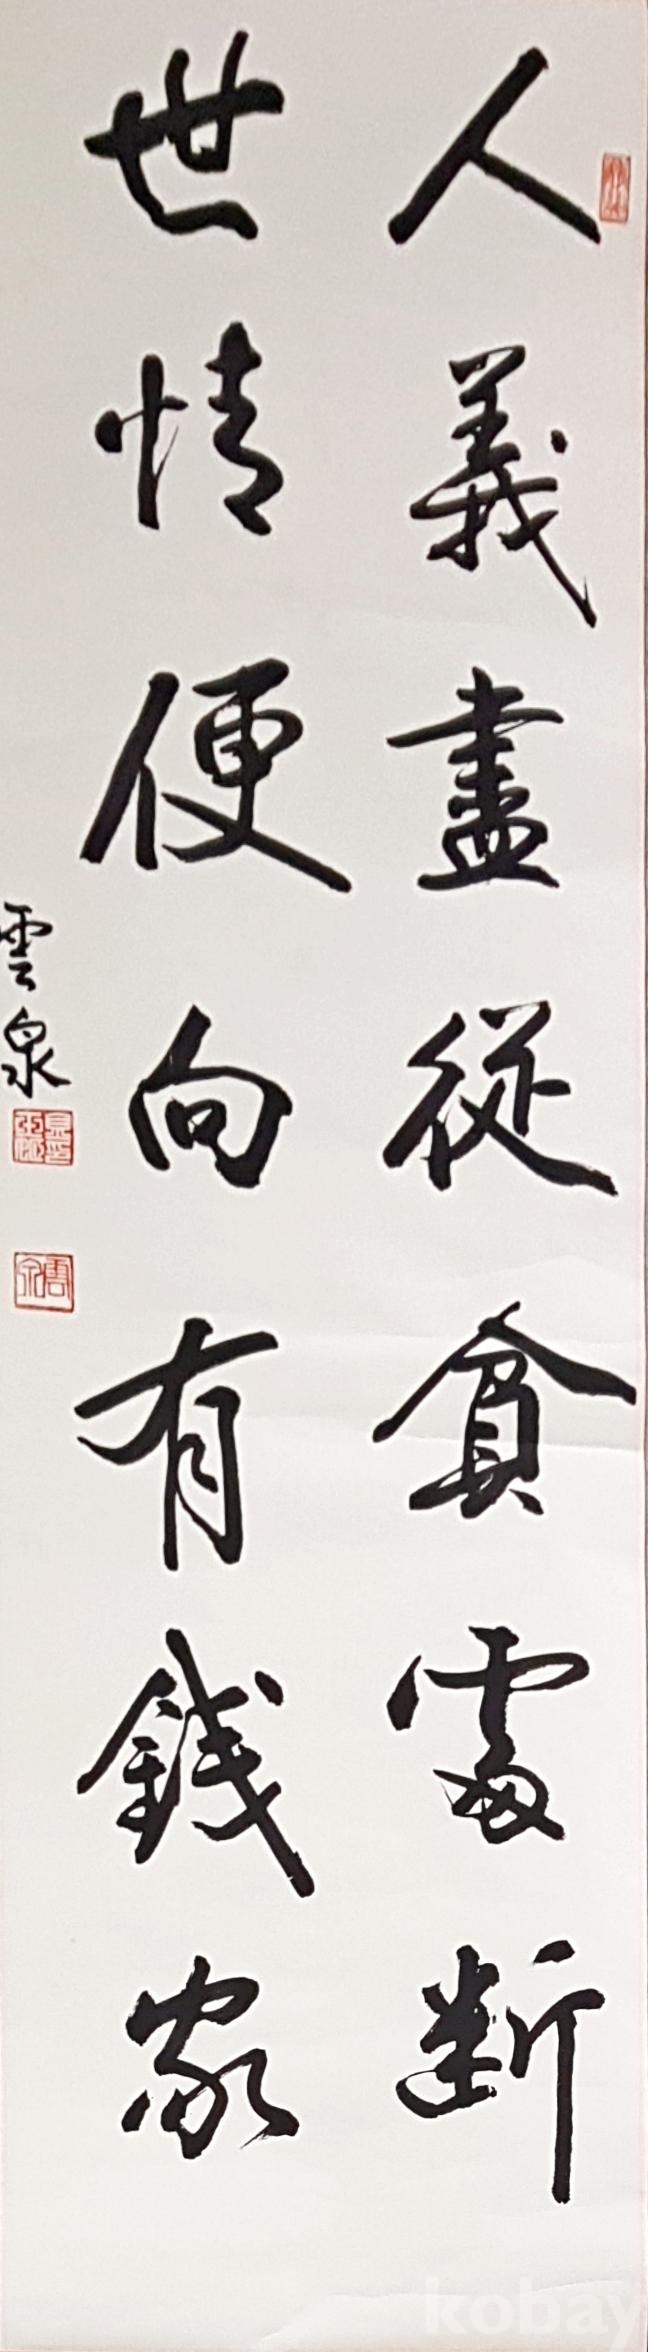 人義盡從貧處斷
世情便向有錢家
雲泉
kobay